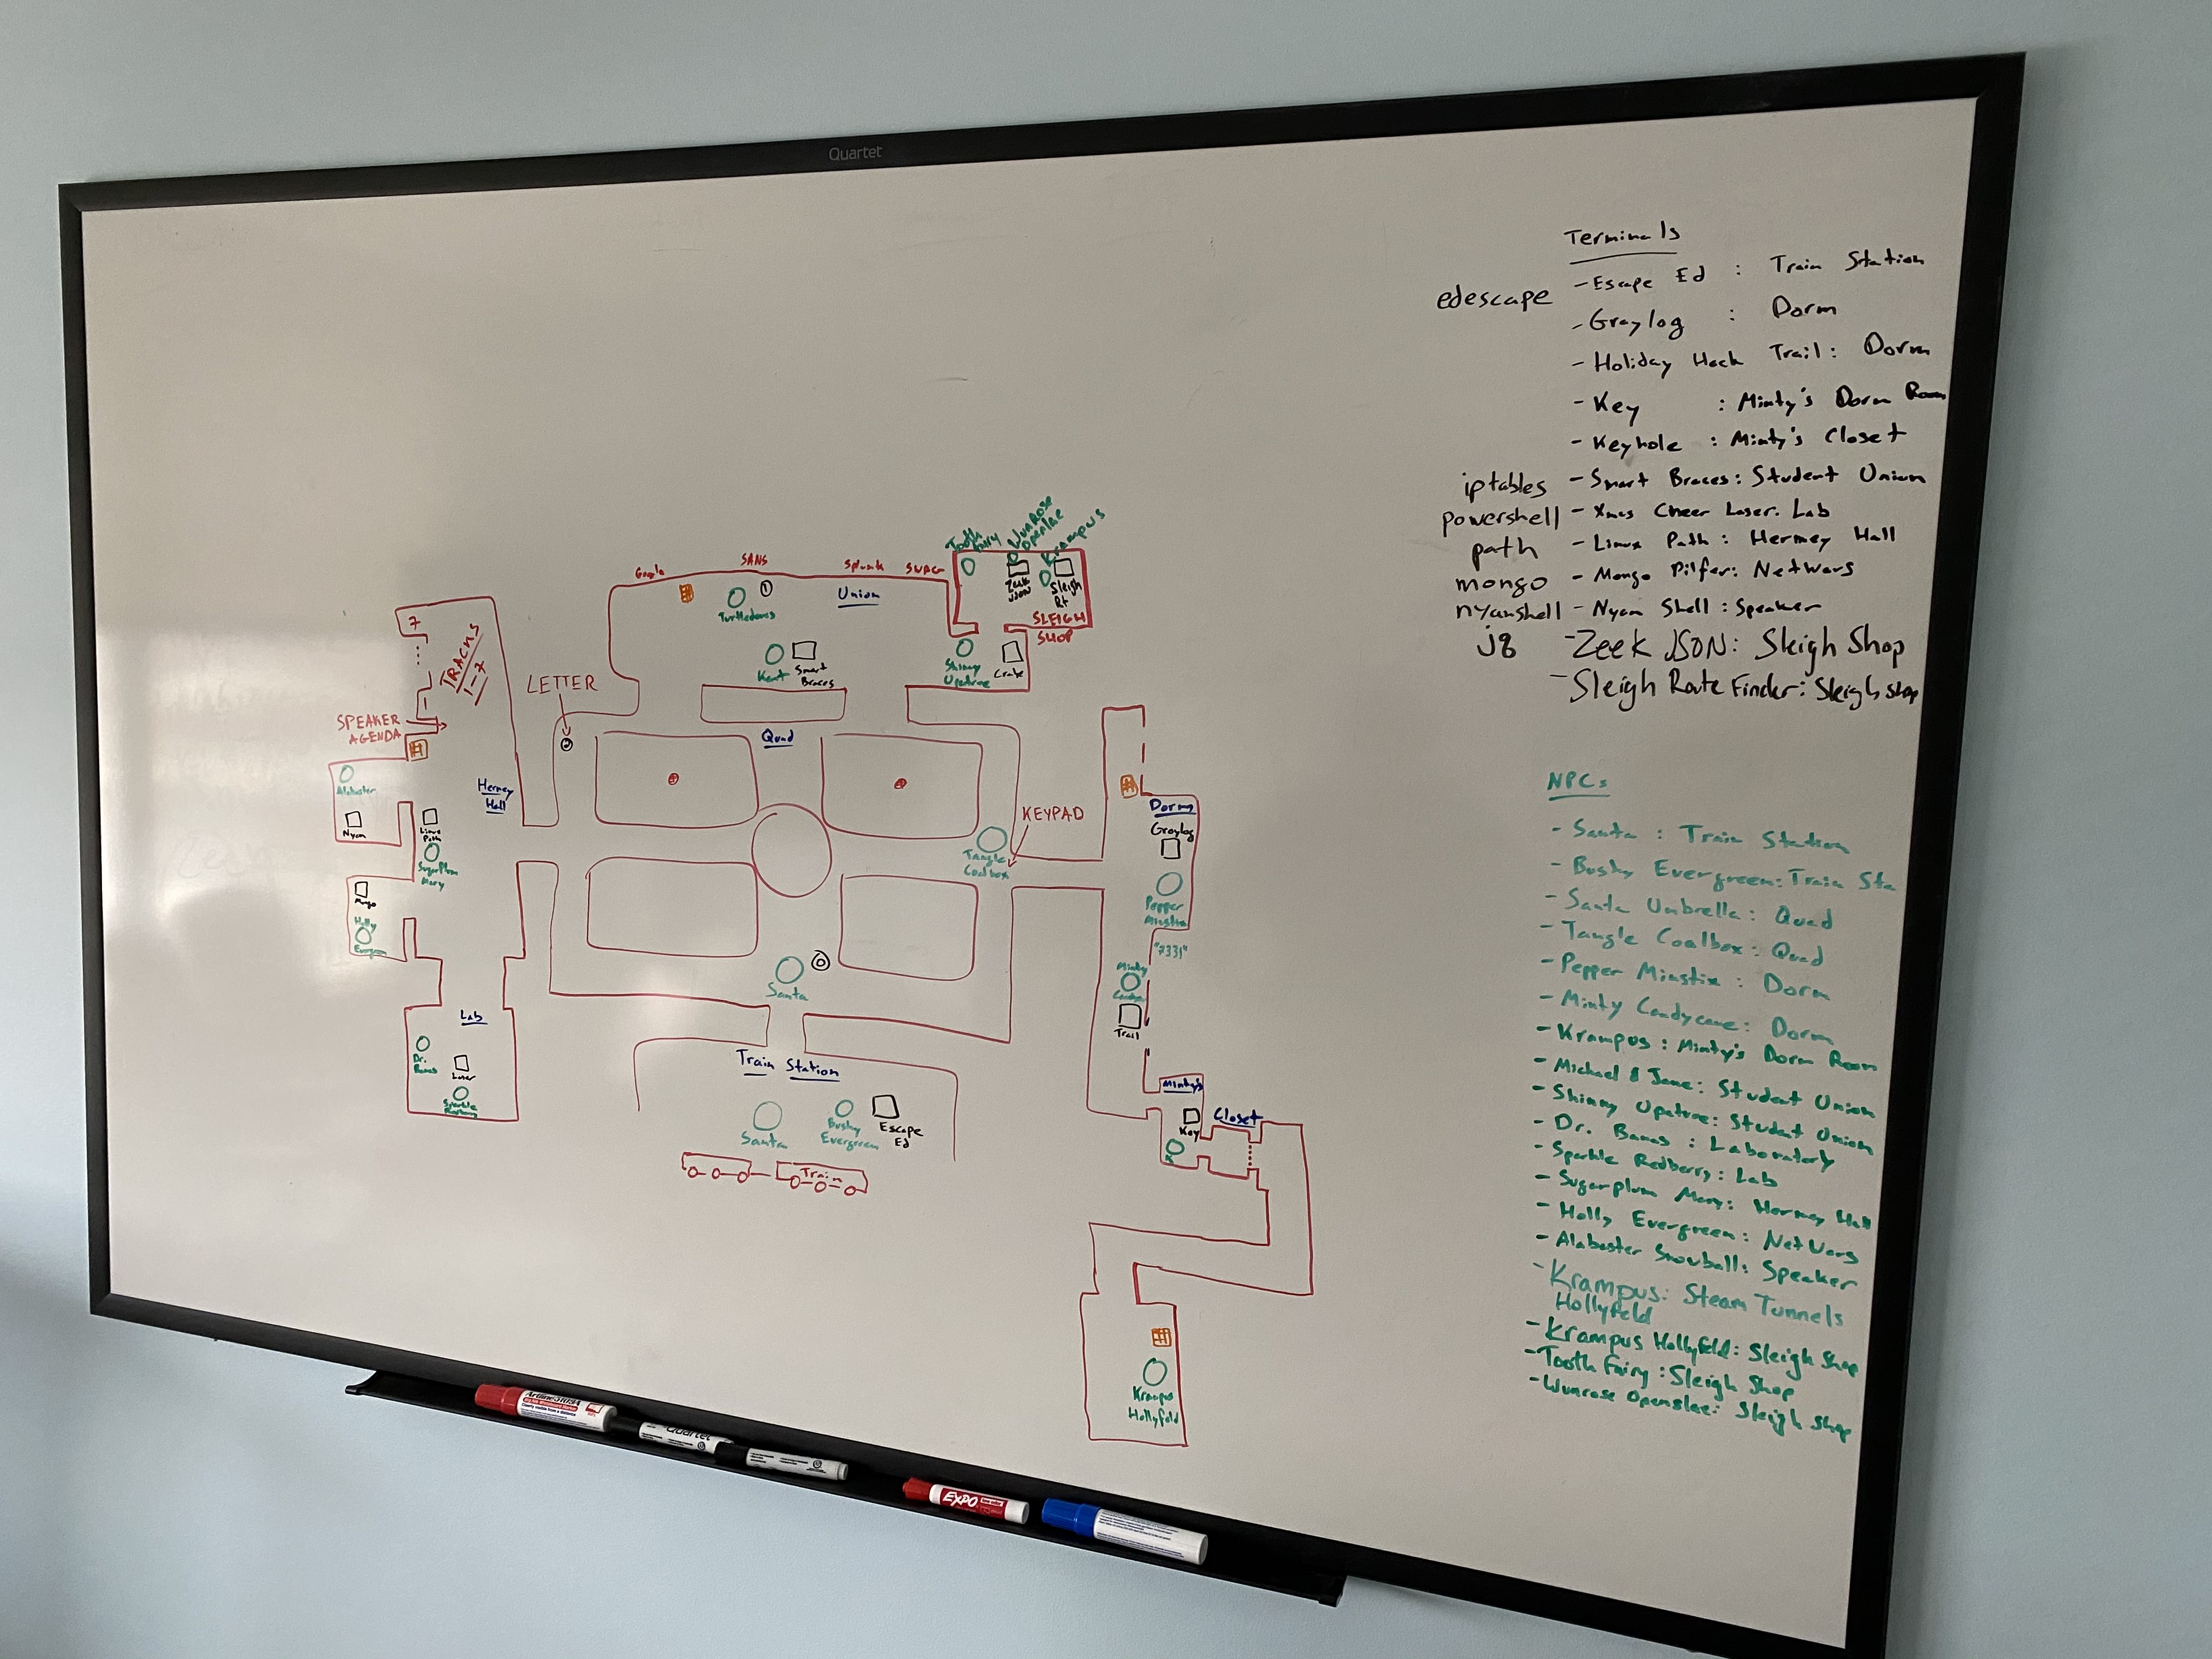 Quartet
Terminals
edescape - Escape Ed : Train Station
- Graylog : Dorm
- Holiday Hack Trail: Dorm
- Key : Minty's Dorm Room
- Keyhole : Minty's Closet
iptables - Smart Braces: Student Union
powershell - Xmas Cheer Laser: Lab
path - Linux Path: Hermey Hall
mongo - Mongo Pilfer: NetWars
nyanshell - Nyan Shell: Speaker
j8 - Zeek JSON: Sleigh Shop
- Sleigh Route Finder: Sleigh Shop
NPCs
- Santa : Train Station
- Bushy Evergreen: Train Sta
- Santa Umbrella: Quad
- Tangle Coalbox: Quad
- Pepper Minstix: Dorm
- Minty Candycane: Dorm
- Krampus: Minty's Dorm Room
- Michael & Jane: Student Union
- Shinny Upatree: Student Union
- Dr. Banas : Laboratory
- Sparkle Redberry: Lab
- Sugarplum Mary: Hermey Hall
- Holly Evergreen: NetWars
- Alabaster Snowball: Speaker
- Krampus: Steam Tunnels
Hollyfeld
- Krampus Hollyfeld: Sleigh Shop
- Tooth Fairy: Sleigh Shop
- Wunrose Openslae: Sleigh Shop
Tooth
Fairy
Wunrose
Openslae
Krampus
Zeek
JSON
Sleigh
Rt
SLEIGH
SHOP
Google
SANS
Splunk
SWAG
Turtledoves
1
Union
Kent
Smart
Braces
Shinny
Upatree
Crate
7
TRACKS
1-7
1
SPEAKER
AGENDA
LETTER
2
Quad
Alabaster
Nyan
Hermey
Hall
Linux
Path
SugarPlum
Mary
Mongo
Holly
Evergreen
KEYPAD
Tangle
Coalbox
Dorm
Graylog
Pepper
Minstix
"7331"
Minty
Trail
Santa
0
Lab
Dr.
Banas
Laser
Sparkle
Redberry
Train Station
Santa
Bushy
Evergreen
Escape
Ed
Train
Minty's
Key
K
Closet
Krampus
Hollyfeld
Quartet
EXPO